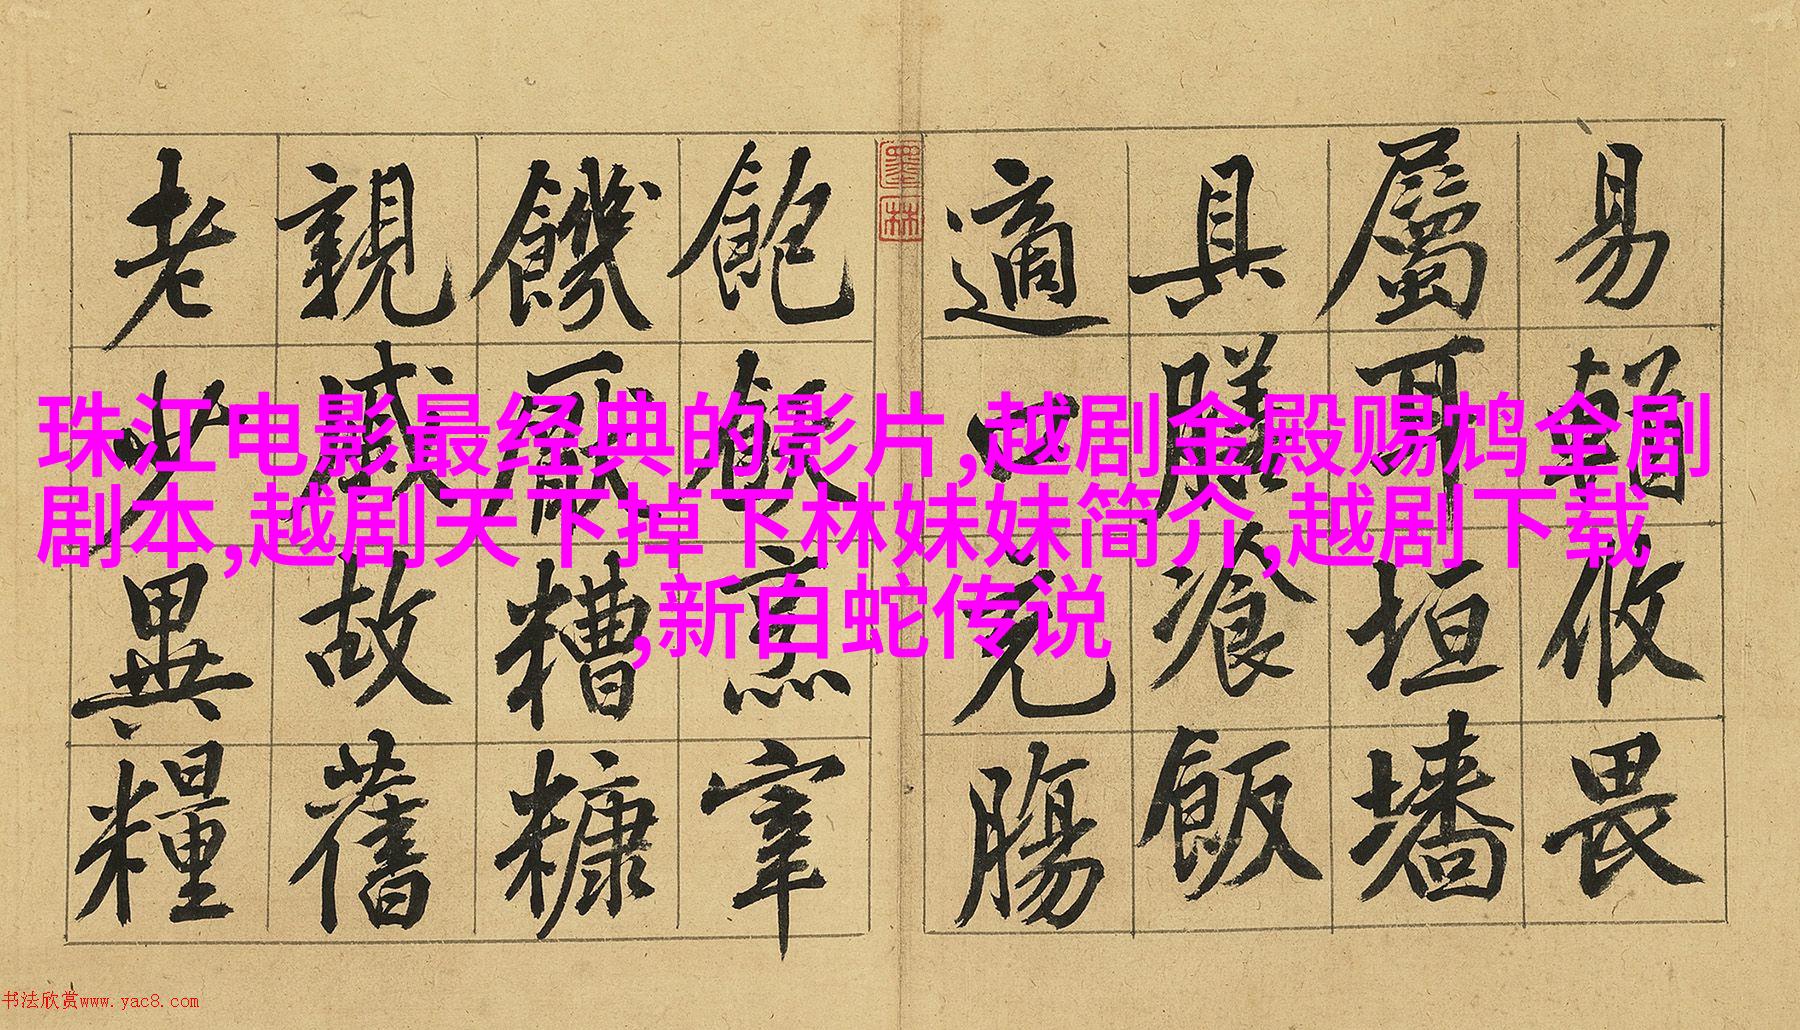 易輶攸畏
屬耳垣墻
具膳湌飯
適口充腸
墨林
飽飫烹宰
饑厭糟糠
親戚故舊
老少異糧
珠江电影最经典的影片,越剧金殿赐鸩全剧
剧本,越剧天下掉下林妹妹简介,越剧下载
,新白蛇传说
书法欣赏www.yac8.com